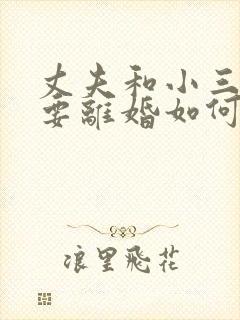 丈夫和小三
要離婚如何
浪里飛花